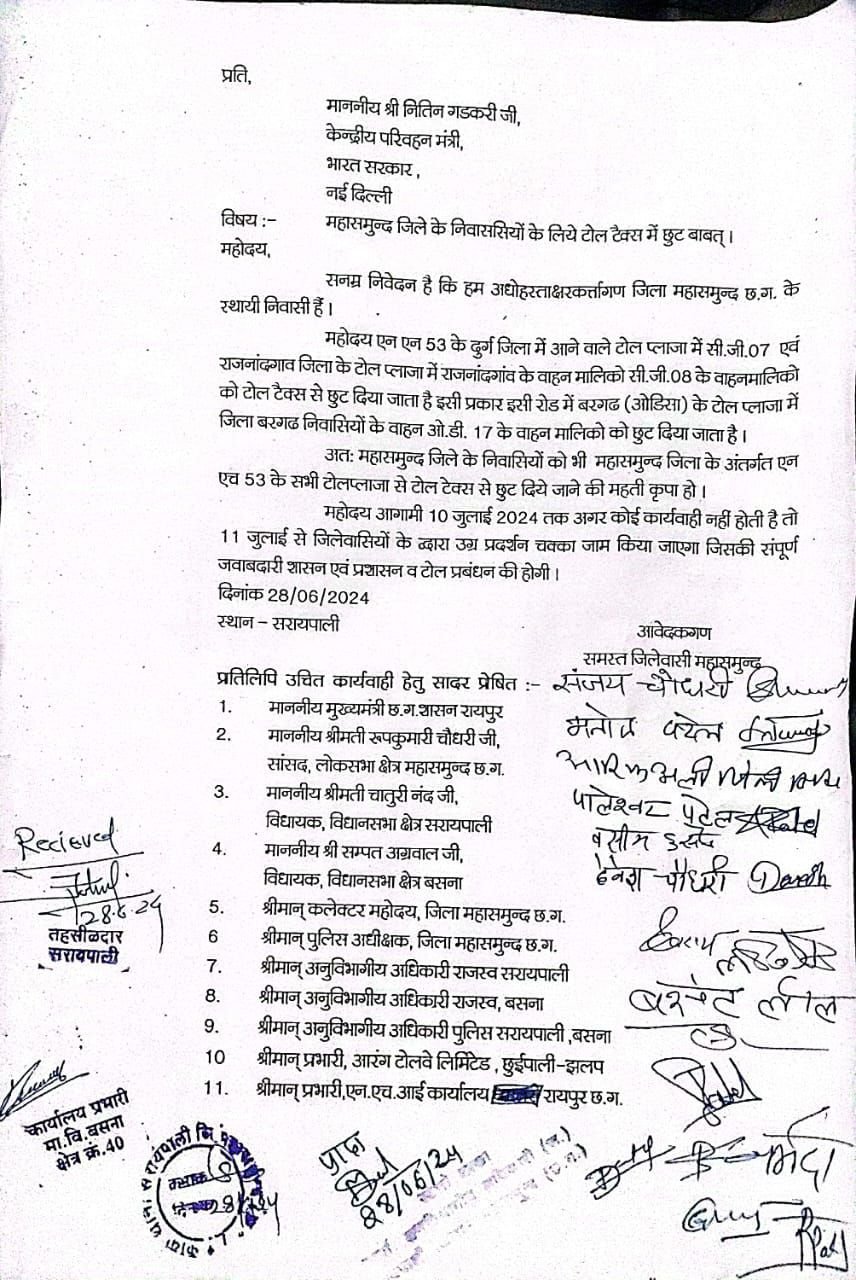 प्रति,
माननीय श्री नितिन गडकरी जी,
केन्द्रीय परिवहन मंत्री,
भारत सरकार ,
नई दिल्ली
विषय :- महासमुन्द जिले के निवाससियों के लिये टोल टैक्स में छुट बाबत् ।
महोदय,
सनम्र निवेदन है कि हम अधोहस्ताक्षरकर्त्तागण जिला महासमुन्द छ.ग. के
स्थायी निवासी हैं ।
महोदय एन एन 53 के दुर्ग जिला में आने वाले टोल प्लाजा में सी.जी.07 एवं
राजनांदगाव जिला के टोल प्लाजा में राजनांदगांव के वाहन मालिको सी.जी.08 के वाहनमालिको
को टोल टैक्स से छुट दिया जाता है इसी प्रकार इसी रोड में बरगढ (ओडिसा) के टोल प्लाजा में
जिला बरगढ निवासियों के वाहन ओ.डी. 17 के वाहन मालिको को छुट दिया जाता है ।
अत: महासमुन्द जिले के निवासियों को भी महासमुन्द जिला के अंतर्गत एन
एच 53 के सभी टोलप्लाजा से टोल टेक्स से छुट दिये जाने की महती कृपा हो ।
महोदय आगामी 10 जुलाई 2024 तक अगर कोई कार्यवाही नहीं होती है तो
11 जुलाई से जिलेवासियों के द्वारा उग्र प्रदर्शन चक्का जाम किया जाएगा जिसकी संपूर्ण
जवाबदारी शासन एवं प्रशासन व टोल प्रबंधन की होगी ।
दिनांक 28/06/2024
स्थान – सरायपाली
आवेदकगण
समस्त जिलेवासी महासमुन्द
प्रतिलिपि उचित कार्यवाही हेतु सादर प्रेषित :-
संजय चौधरी
1. माननीय मुख्यमंत्री छ.ग.शासन रायपुर
2. माननीय श्रीमती रूपकुमारी चौधरी जी,
सांसद, लोकसभा क्षेत्र महासमुन्द छ.ग.
3. माननीय श्रीमती चातुरी नंद जी,
विधायक, विधानसभा क्षेत्र सरायपाली
4. माननीय श्री सम्पत अग्रवाल जी,
विधायक, विधानसभा क्षेत्र बसना
5. श्रीमान् कलेक्टर महोदय, जिला महासमुन्द छ.ग.
6 श्रीमान् पुलिस अधीक्षक, जिला महासमुन्द छ.ग.
7. श्रीमान् अनुविभागीय अधिकारी राजस्व सरायपाली
8. श्रीमान् अनुविभागीय अधिकारी राजस्व, बसना
9. श्रीमान् अनुविभागीय अधिकारी पुलिस सरायपाली ,बसना
10 श्रीमान् प्रभारी, आरंग टोलवे लिमिटेड , छुईपाली-झलप
11. श्रीमान् प्रभारी,एन.एच.आई कार्यालय रायपुर छ.ग.
पालेश्वर पटेल
देवेश चौधरी
Recieved
28.6.24
तहसीलदार
सरायपाली
कार्यालय प्रभारी
मा.वि.बसना
क्षेत्र क्रं.40
प्राप्त
28/06/24